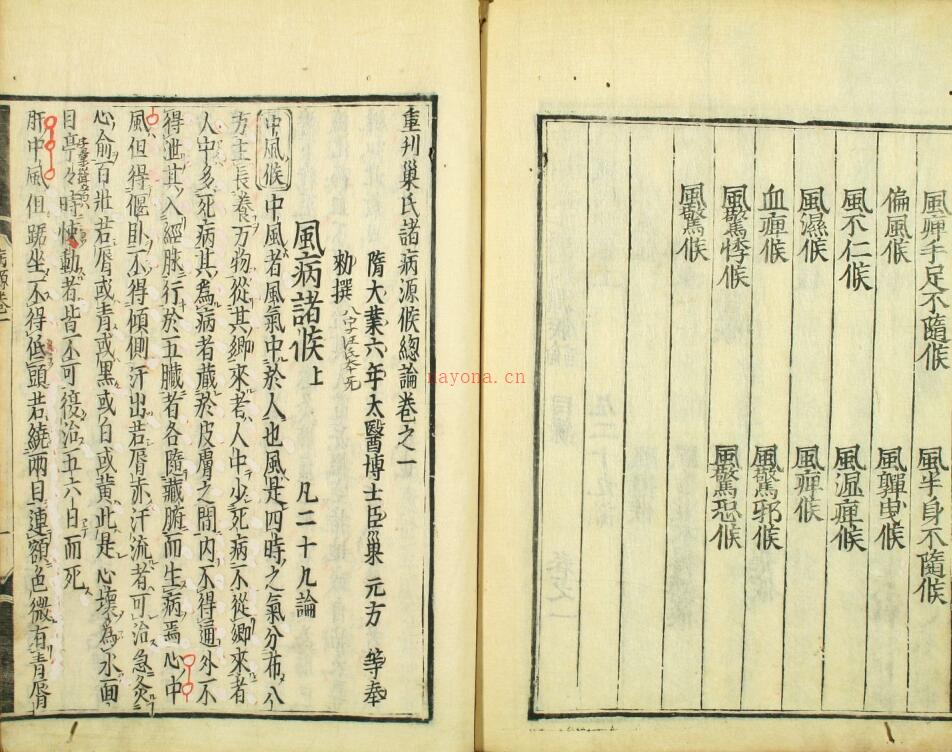 風痺手足不隨候　風半身不隨候
偏風候　風嚲曳候
風不仁候　風湿痺候
風濕候　風痺候
血痺候　風驚邪候
風驚悸候　風驚恐候
風驚候
重刋巢氏諸病源候總論卷之一
隋大業六年太醫博士臣巢元方　等奉
勑撰　八字汪氏本无
風病諸候上　凡二十九論
中風候　中風者風氣中於人也風是四時之氣分布八
方主長養万物從其鄉來者人中少死病不從鄉來者
人中多死病其為病者藏於皮膚之間内不得通外不
得泄其入經脉行於五臟者各隨藏腑而生病焉心中
風但得偃卧不得傾側汗出若脣赤汗流者可治急灸
心俞百壯若脣或青或黑或白或黃此是心壞為水面
目亭々時悚動者皆不可復治五六日而死
肝中風但踞坐不得低頭若繞兩目連額色微有青脣
病源卷一
nayona.cn